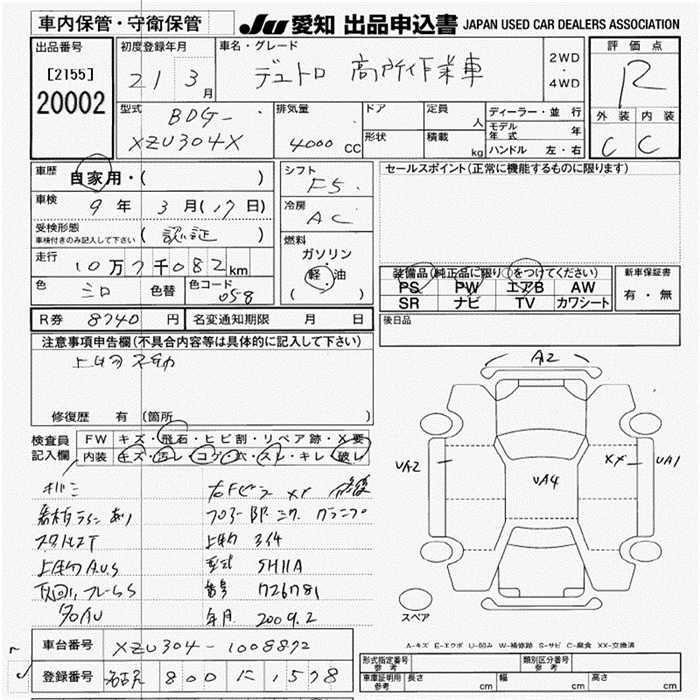 車内保管・守衛保管
JU 愛知 出品申込書 JAPAN USED CAR DEALERS ASSOCIATION
出品番号
[2155]
20002
初度登録年月
21 3月
車名・グレード
デュトロ 高所作業車
2WD・4WD
評価点
R
外装 内装
C C
型式
BDG-
XZU304X
排気量
4000 CC
ドア
形状
定員 人
積載 kg
ディーラー・並行
モデル年式 年
ハンドル 左・右
車歴
自家用・( )
車検
9年 3月(17日)
受検形態
車検付きのみ記入して下さい
(認証)
走行
10万7千082km
色 シロ 色替 色コード 058
シフト
F5
冷房
AC
燃料
ガソリン
軽・油
( )
セールスポイント(正常に機能するものに限ります)
装備品(純正品に限り○をつけてください)
PS PW エアB AW
SR ナビ TV カワシート
新車保証書
有・無
R券 8740円 名変通知期限 月 日
後日品
注意事項申告欄(不具合内容等は具体的に記入して下さい)
上物不動
修復歴 有 (箇所 )
検査員記入欄
FW キズ・飛石・ヒビ割・リペア跡・X要
内装 キズ・汚レ・コゲ・穴・スレ・キレ・破レ
右Fピラー XX 修復
フロアー
上物
型式 SH11A
番号 726781
年月 2009.2
上物AUS
下回り、フレームS
A2
UA2
UA4
XX
UA1
スペア
A-キズ E-エクボ U-凹み W-補修跡 S-サビ C-腐食 XX-交換済
車台番号 XZU304-1008872
登録番号 名古屋 800 に 1578
形式指定番号 参考
類別区分番号 参考
車庫証明用 参考 長さ cm 幅 cm 高さ cm